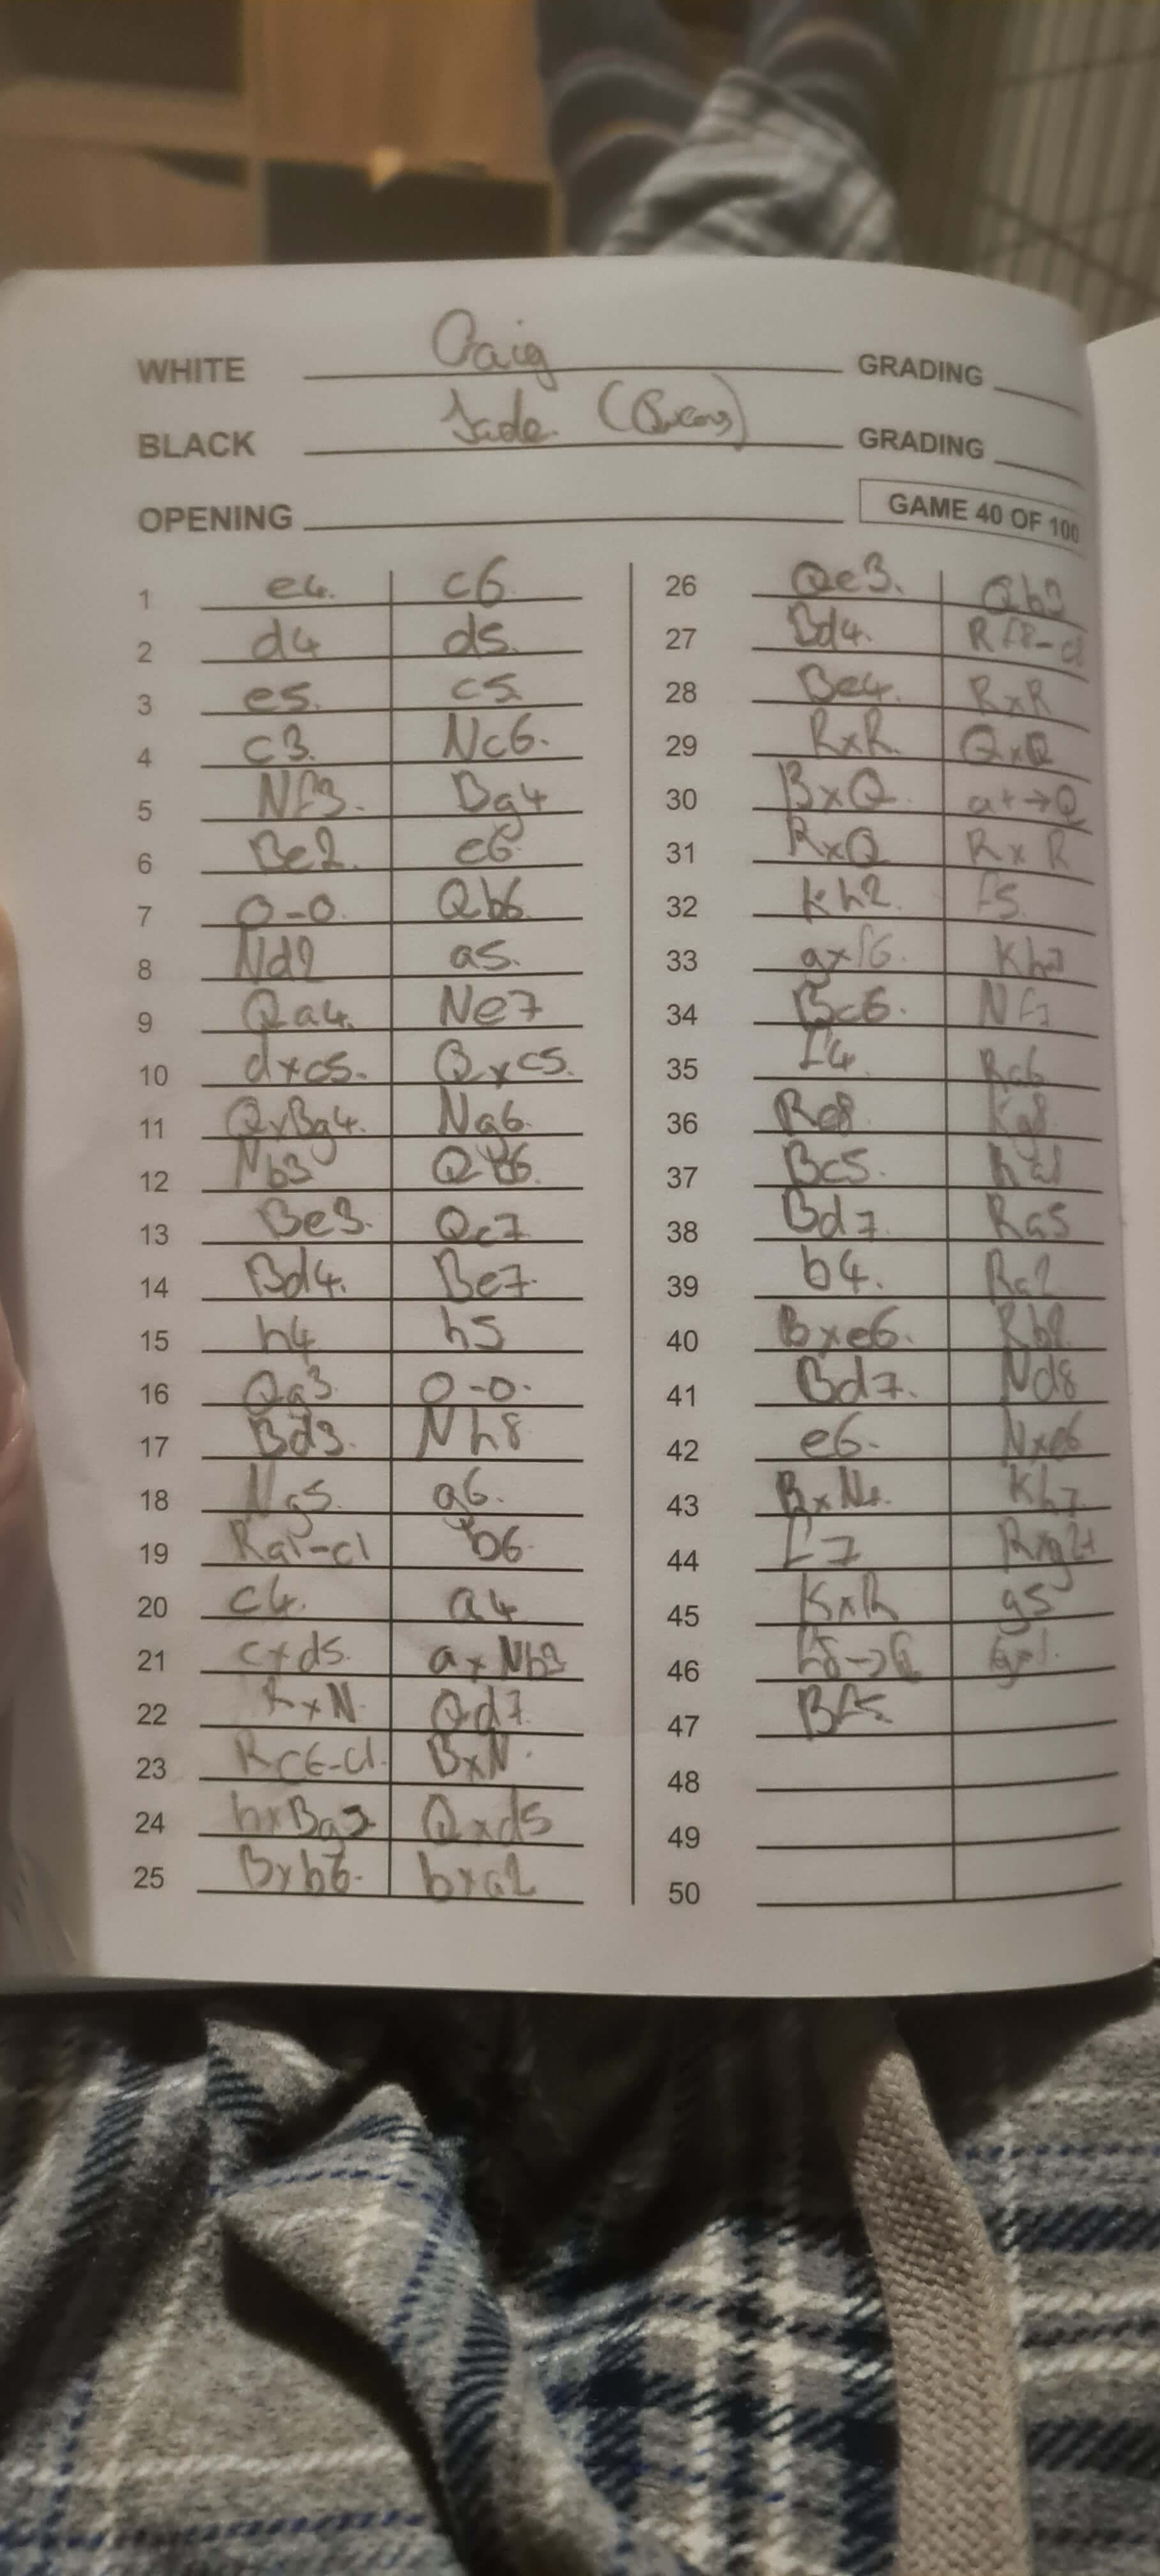 WHITE Craig GRADING
BLACK Jade GRADING
OPENING
GAME 40 OF 100
1 e4. c6
2 d4 d5.
3 e5. c5
4 c3. Nc6.
5 Nf3. Bg4
6 Be2. e6
7 0-0. Qb6
8 Nd2 a5.
9 Qa4. Ne7
10 dxc5. Qxc5.
11 QxBg4. Ng6.
12 Nb3
13 Be3. Qc7
14 Bd4. Be7.
15 h4 h5
16 Qg3. 0-0.
17 Bd3. Nh8
18 Ng5. g6.
19 Ra1-c1 b6.
20 c4. a4
21 cxd5. axNb3
22 RxN. Qd7.
23 Rc6-c1. BxN.
24 hxBg5 Qxd5
25 Bxb6. bxa2
26 Qe3. Qb3
27 Bd4.
28 Be4. RxR
29 RxR. QxQ
30 BxQ.
31 RxQ RxR
32 Kh2. f5.
33 gxf6. Kh7
34 Bc6. Nf7
35 f4. Ra6
36 Re8. Kg8
37 Bc5.
38 Bd7 Ra5
39 b4. Ra2
40 Bxe6. Rb2
41 Bd7. Nd8
42 e6. Nxe6
43 BxN+. Kh7
44 f7 Rxg2+
45 KxR g5
46 f8→Q
47 Bf5
48
49
50